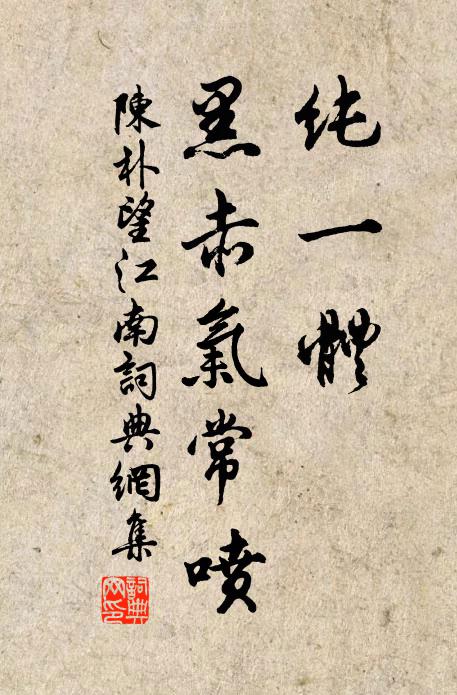 純一體
黑赤氣常噴
陳朴望江南詞典網集
詞典
网印